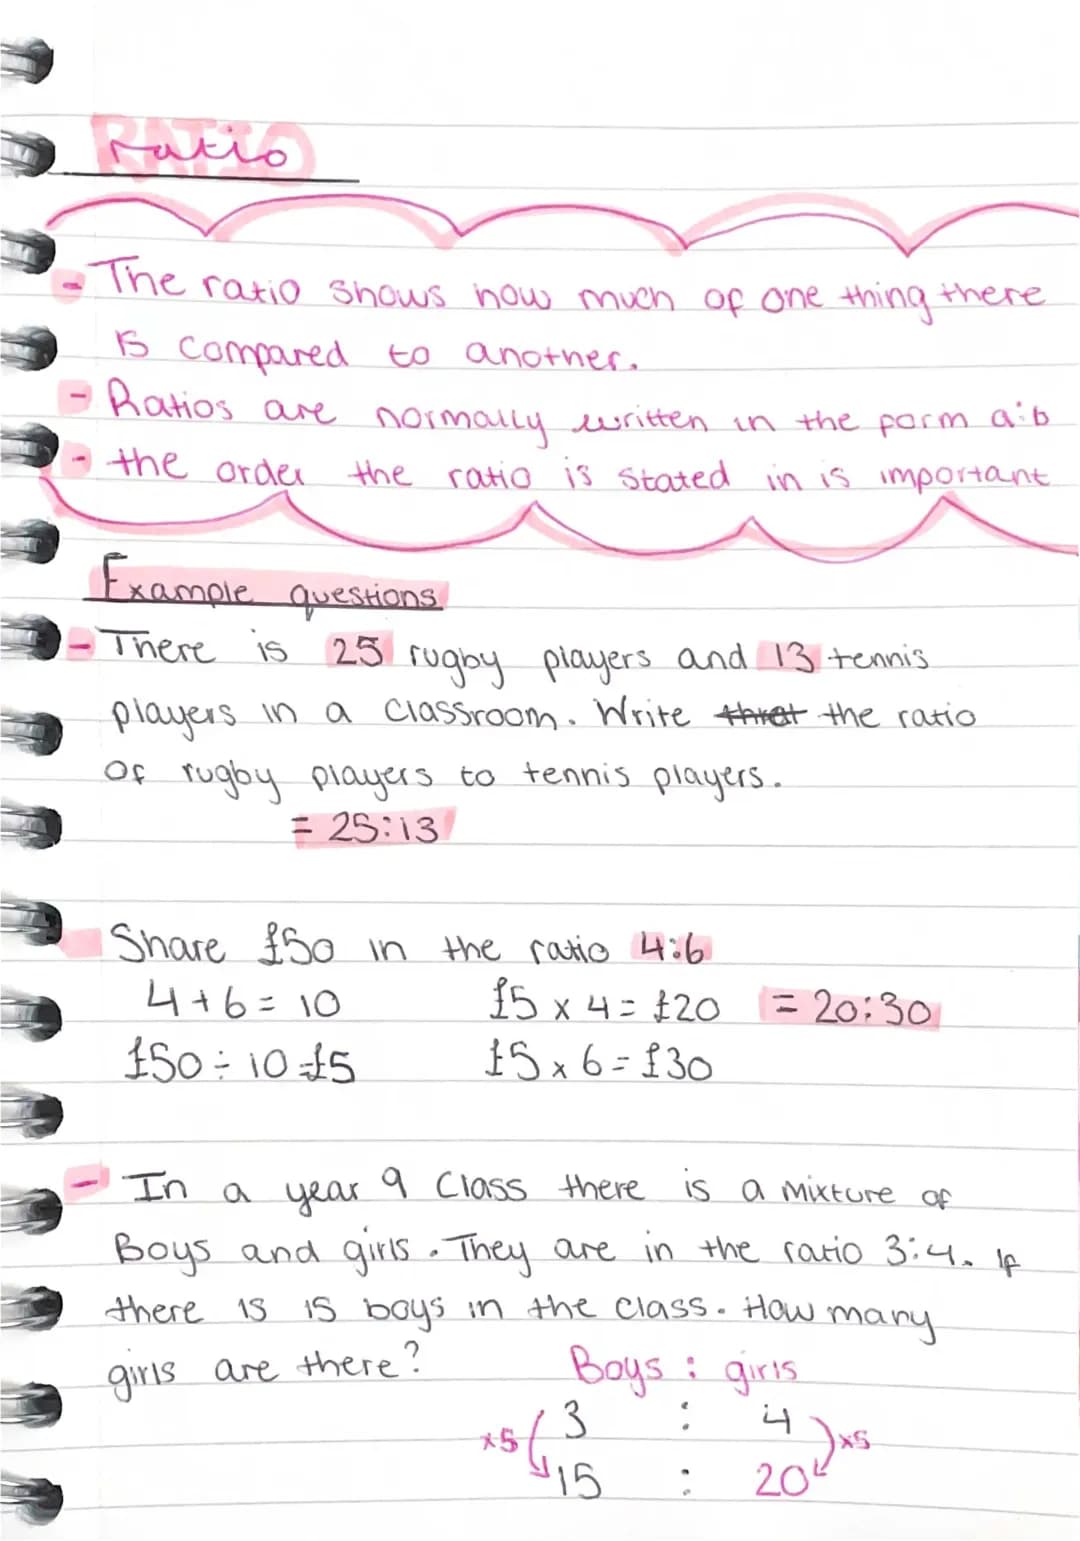 RATIO
ratio
- The ratio shows how much of one thing there
is compared to another.
- Ratios are normally written in the form a:b
- the order the ratio is stated in is important
Example questions
- There is 25 rugby players and 13 tennis
players in a classroom. Write thret the ratio
of rugby players to tennis players.
= 25:13
Share £50 in the ratio 4:6
4 + 6 = 10 £5 x 4 = £20 = 20:30
£50 ÷ 10 = £5 £5 x 6 = £30
- In a year 9 Class there is a mixture of
Boys and girls. They are in the ratio 3:4. If
there is 15 boys in the class. How many
girls are there? Boys : girls
x5 3 : 4 x5
15 : 20